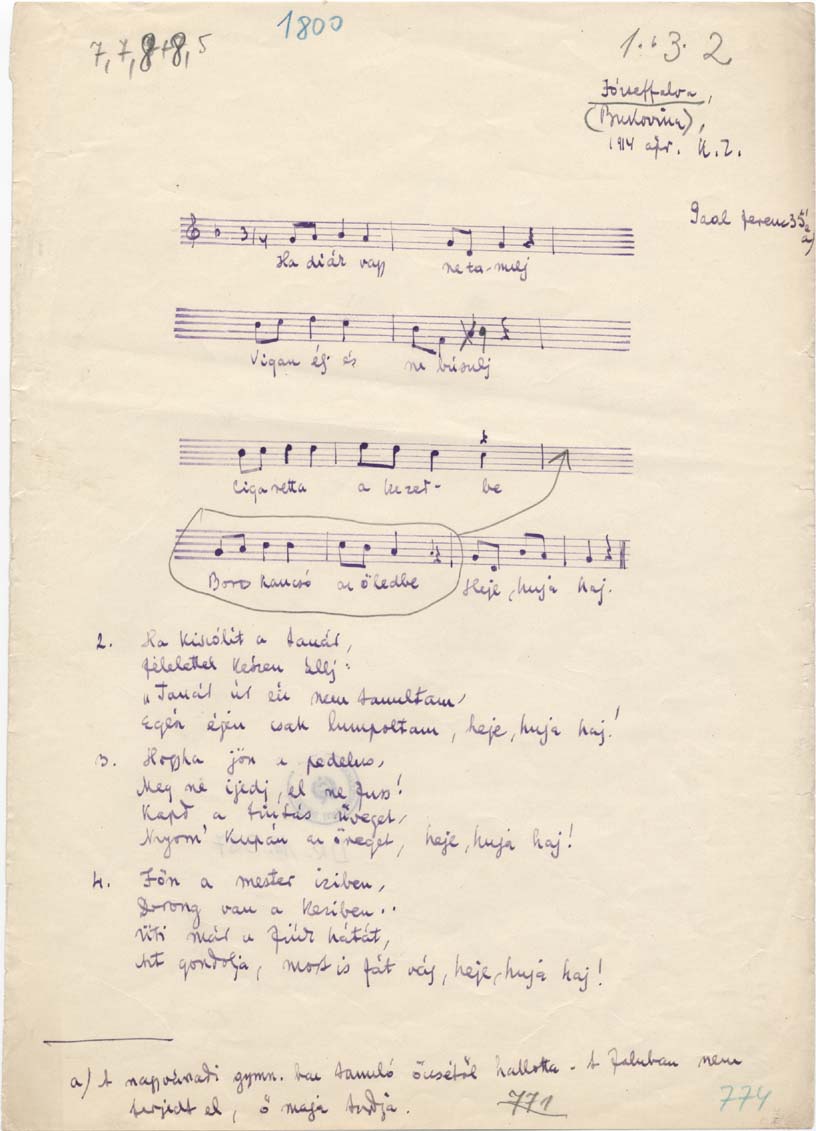 1800
7, 7, 8+8, 5
1. b3. 2
Józseffalva,
(Bukovina),
1914 ápr. K. Z.
Gaál Ferenc 35 é
a)
3/4
Ha diák vagy ne ta-nulj
Vigan élj és ne búsulj
Cigaretta a kezed- be
Boros kancsó az öledbe Heje, huja haj.
2. Ha kiszólít a tanár,
Felelettel készen állj:
„Tanár úr én nem tanultam,
Egész éjjen csak lumpoltam, heje, huja haj!
3. Hogyha jön a pedelus,
Meg ne ijedj, el ne fuss!
Kapd a tintás üveget,
Nyom' kupán az öreget, heje, huja haj!
4. Jön a mester iziben,
Dorong van a keziben..
Üti már a fiúk hátát,
Azt gondolja, most is fát vág, heje, huja haj!
a) A nagyváradi gymn. ban tanuló öccsétől hallotta. A faluban nem
terjedt el, ő maga tudja. 771 774